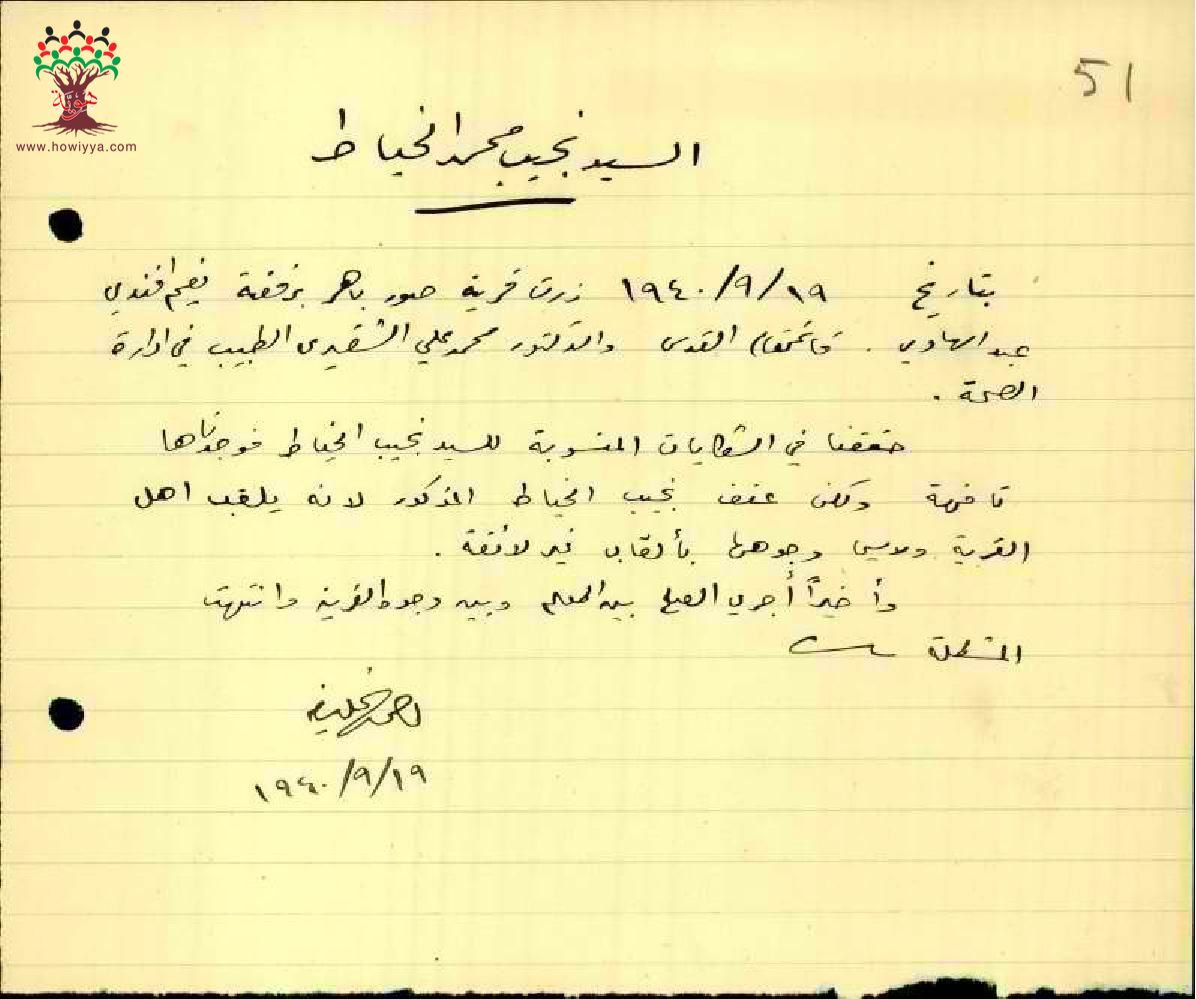 هوية
www.howiyya.com
51
السيد نجيب محمد الخياط
بتاريخ ١٩٤٠/٩/١٩ زرت قرية صور باهر برفقة نعيم افندي
عبد الهادي. قائمقام القدس والدكتور محمد علي الشقيري الطبيب في ادارة
الصحة.
حققنا في الشكايات المنسوبة للسيد نجيب الخياط فوجدناها
تافهة ولكن نجيب الخياط المذكور لانه يلقب اهل
القرية وجوهها بألقاب غير لائقة.
وأخيراً أجري الصلح بين المعلم وبين وجوه القرية وانتهت
المشكلة
احمد خليفه
١٩٤٠/٩/١٩